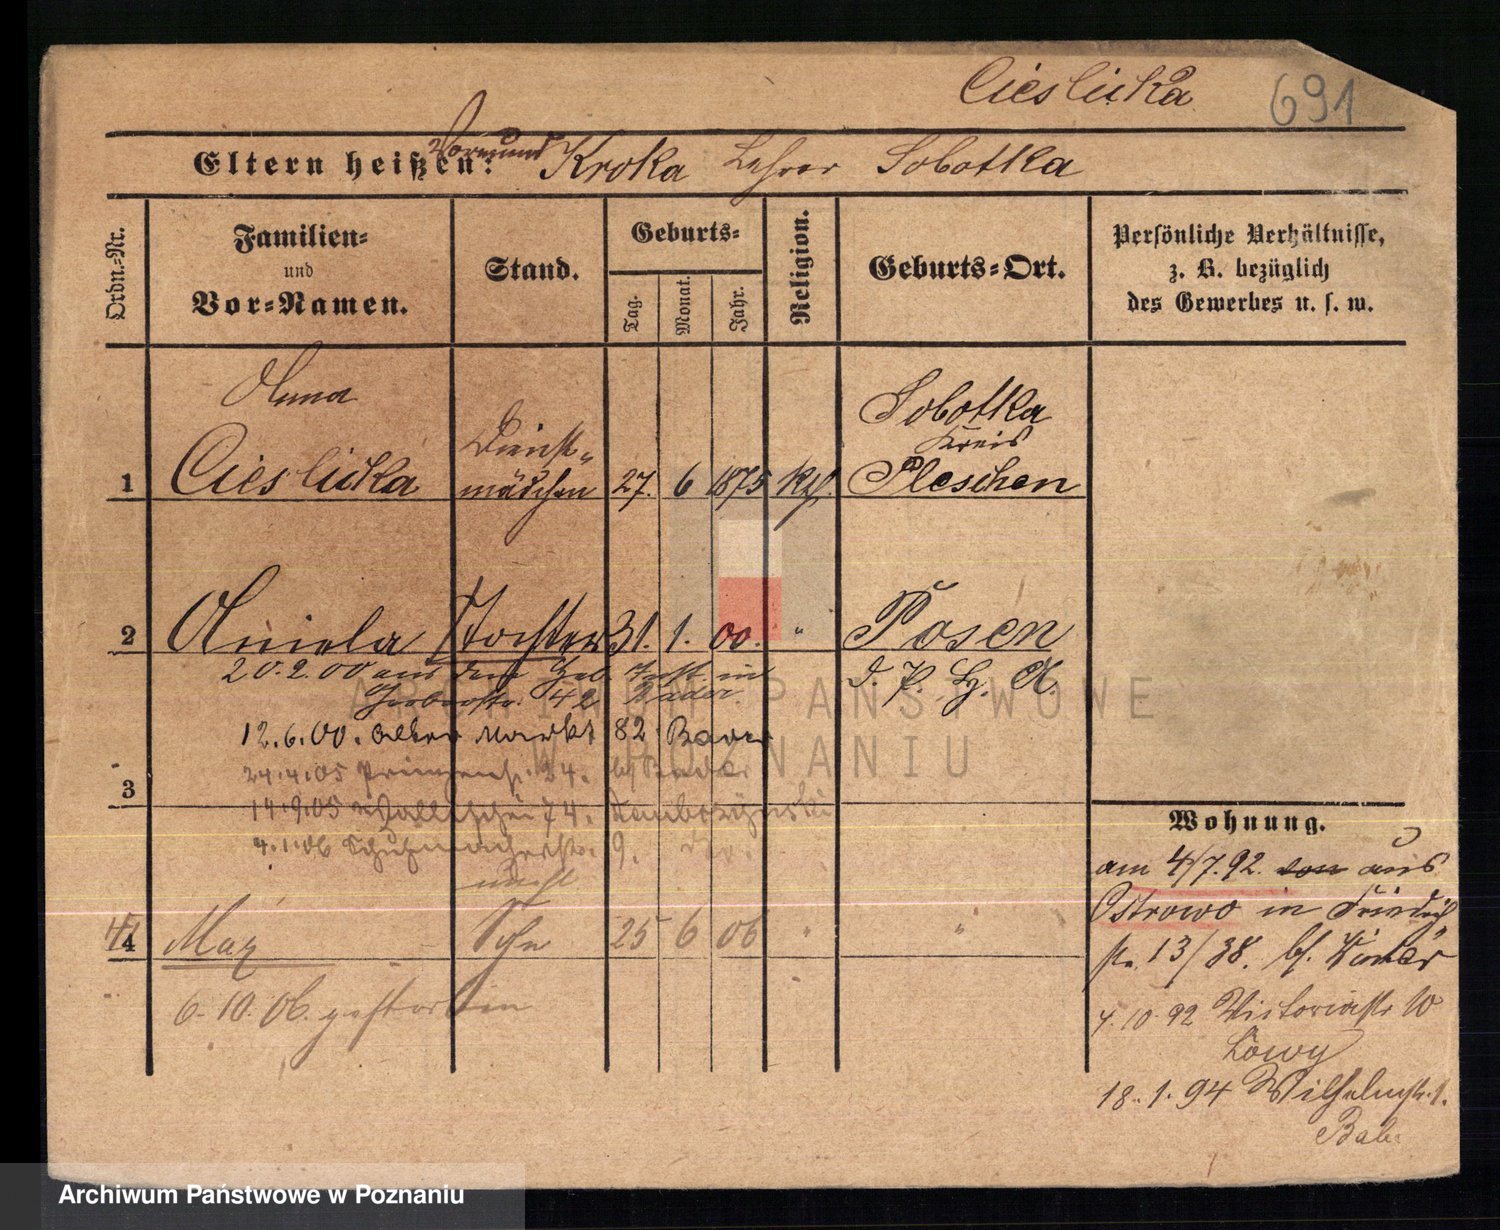 Cieslicka 691
Eltern heißen: Vormund Kroka Lehrer Sobotka
Ordn.-Nr.
Familien-
und
Vor-Namen.
Stand.
Geburts-
Tag.
Monat.
Jahr.
Religion.
Geburts-Ort.
Persönliche Verhältnisse,
z. B. bezüglich
des Gewerbes u. s. w.
Anna
Cieslicka
Dienst-
mädchen
1
27. 6 1875 Kth
Sobotka
Kreis
Pleschen
2 Aniela Tochter 31. 1. 00. " Posen
20.2.00 aus dem Geb. Inst. in
Gerberstr. 42 Bader
12.6.00. Alter Markt 82 Bader
24.4.05 Prinzenstr. 24. bf Bader
3
14.9.05 Wallischei 74.
4.1.06 Schuhmacherstr. 9.
unehl
4 Max Sohn 25 6 06 " "
6.10.06. gestorben
Wohnung.
am 4/7.92. von aus
Ostrowo in Friedrich
str. 13/38. bf.
4.10.92 Victoriastr 10
Löwy
18.1.94 Wilhelmstr. 1.
ARCHIWUM PAŃSTWOWE
W POZNANIU
Archiwum Państwowe w Poznaniu